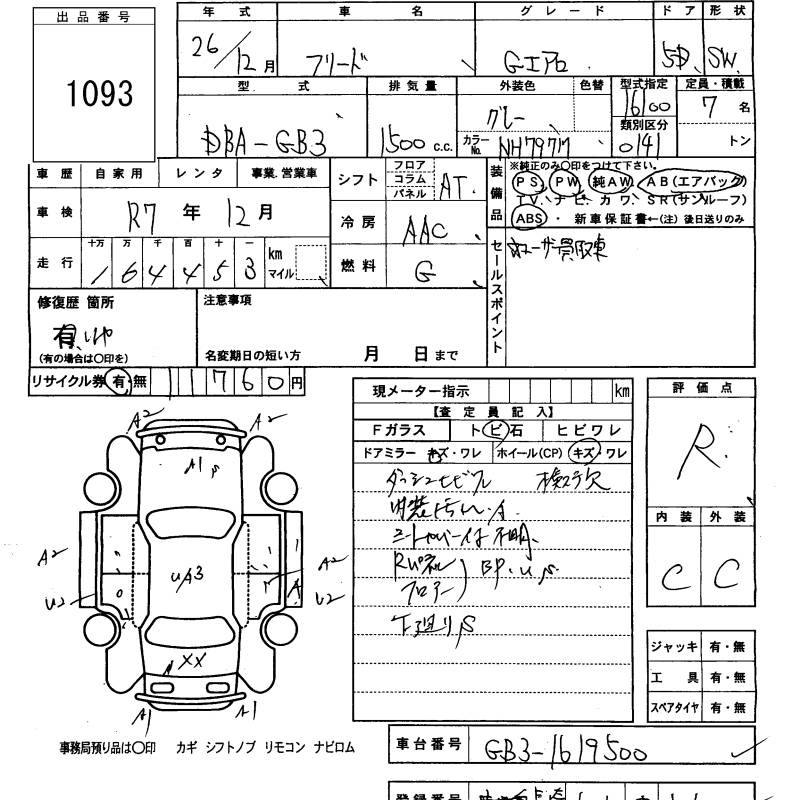 出品番号 年式 車名 グレード ドア 形状
1093 26/12月 フリード Gエアロ 5D SW
型式 排気量 外装色 色替 型式指定 定員・積載
DBA-GB3 1500 c.c. グレー 16100 7名
カラーNo. NH797M 類別区分 0141 トン
車歴 自家用 レンタ 事業.営業車 シフト フロア コラム パネル AT 装備品 ※純正のみ〇印をつけて下さい。
PS PW 純AW AB(エアバック)
TV ナビ カワ SR(サンルーフ)
ABS ・新車保証書←(注) 後日送りのみ
車検 R7年 12月 冷房 AAC
走行 十万 万 千 百 十 一 km マイル 燃料 G
1 6 4 4 5 3
セールスポイント ユーザー買取車
修復歴 箇所 注意事項
有
(有の場合は〇印を) 名変期日の短い方 月 日まで
リサイクル券 有・無 11760円
現メーター指示 km 評価点
【査定員記入】 R
Fガラス トビ石 ヒビワレ
ドアミラー キズ・ワレ ホイール(CP) キズ・ワレ
ダッシュセビフル
内装
シートカバー 不明
Rパネル
フロアー BP.U.S
下廻りS
内装 外装
C C
A2 A2
A1 S
A2 A2
U2 U2
U/A3
A
XX
A1 A1
ジャッキ 有・無
工具 有・無
スペアタイヤ 有・無
事務局預り品は〇印 カギ シフトノブ リモコン ナビロム
車台番号 GB3-1619500
登録番号